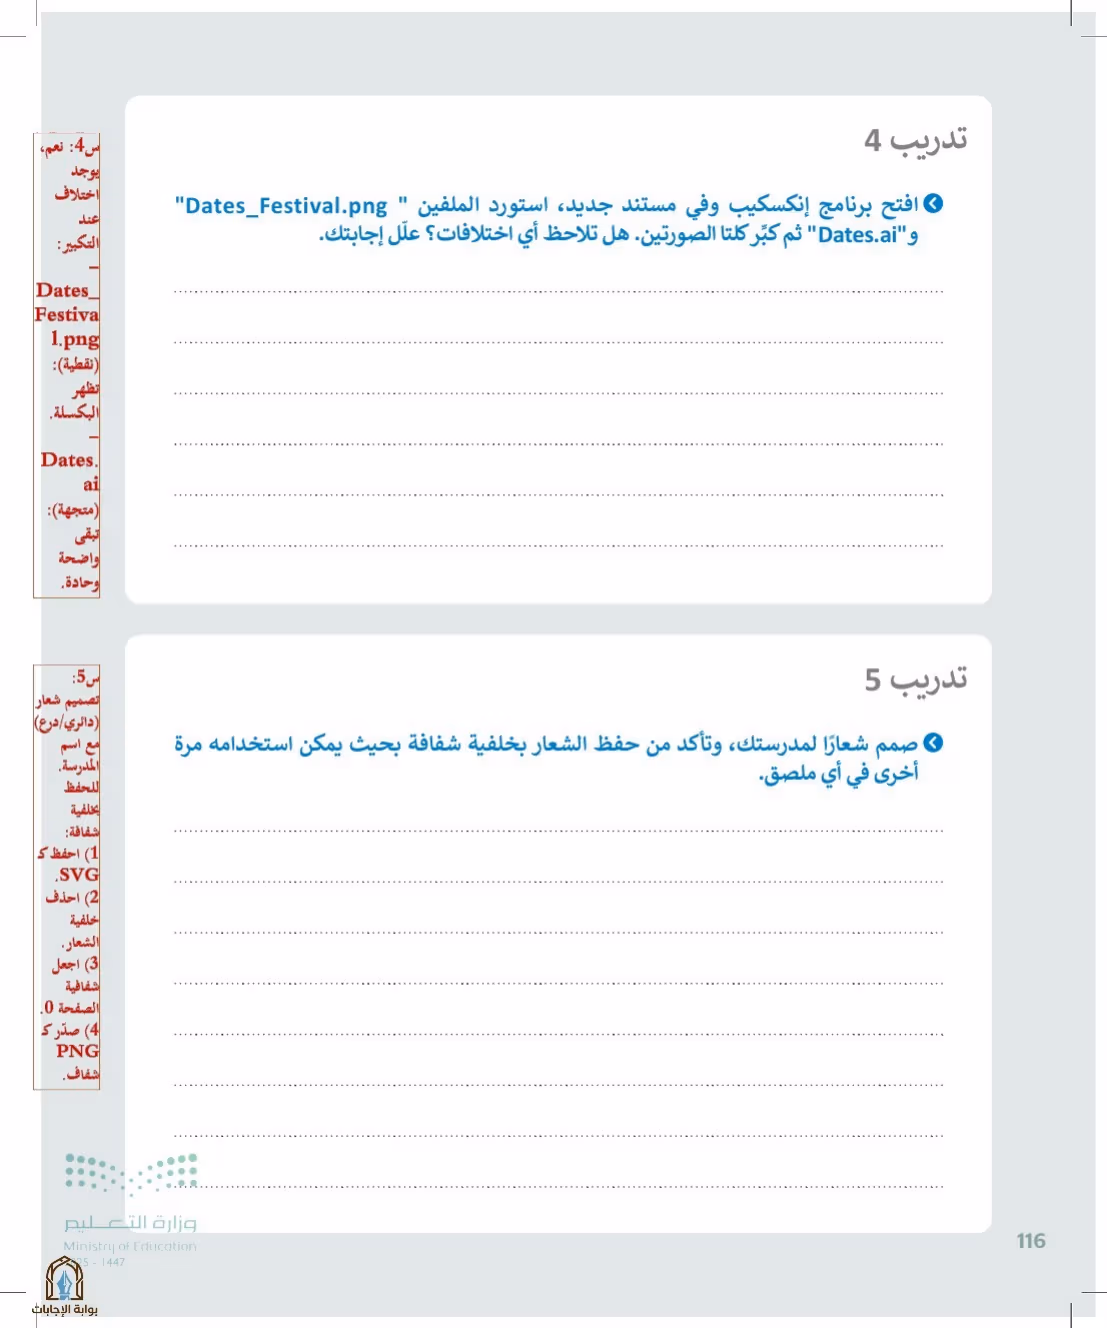 تدريب 4
افتح برنامج إنكسكيب وفي مستند جديد، استورد الملفين " Dates_Festival.png"
و"Dates.ai" ثم كبّر كلتا الصورتين. هل تلاحظ أي اختلافات؟ علّل إجابتك.
س4: نعم،
يوجد
اختلاف
عند
التكبير:
–
Dates_
Festiva
l.png
(نقطية):
تظهر
البكسلة.
–
Dates.
ai
(متجهة):
تبقى
واضحة
وحادة.
تدريب 5
صمم شعارًا لمدرستك، وتأكد من حفظ الشعار بخلفية شفافة بحيث يمكن استخدامه مرة
أخرى في أي ملصق.
س5:
تصميم شعار
(دائري/درع)
مع اسم
المدرسة.
للحفظ
بخلفية
شفافة:
1) احفظ كـ
SVG.
2) احذف
خلفية
الشعار.
3) اجعل
شفافية
الصفحة 0.
4) صدّر كـ
PNG
شفاف.
وزارة التعليم
Ministry of Education
1447 -
116
بوابة الإجابات